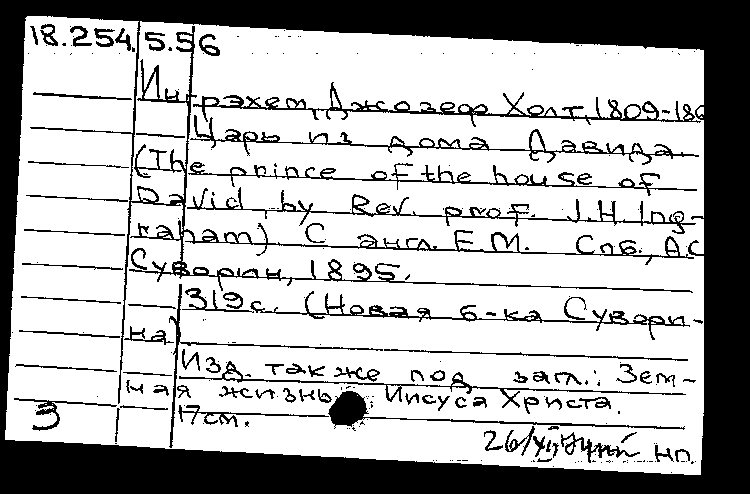 18.254.5.56
Ингрэхем, Джозеф Холт, 1809-186
Царь из дома Давида.
(The prince of the house of
David, by Rev. prof. J.H. Ing-
raham) С англ. Е.М. Спб., А.С
Суворин, 1895.
319с. (Новая б-ка Сувори-
на)
Изд. также под загл.: Зем-
ная жизнь Иисуса Христа.
17см.
3
26/XII нп.